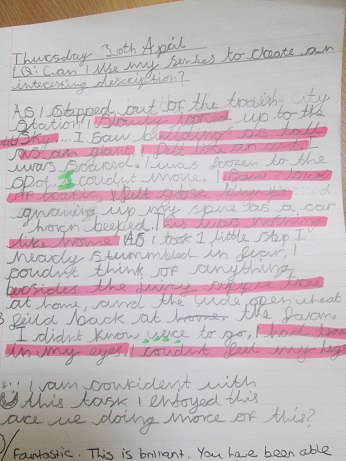 Thursday 30th April
LQ: Can I use my senses to create an
interesting description?
As I stepped out of the tradish City
Station, I slowly looked up to the
sky... I saw buildings as tall
as an giant. I felt like an ant. I
was scared. I was frozen to the
spot. I coudnt move. I
of traffic, I felt goose
gnawing up my spine as a car
horn beeped. This was nothing
like home. As I took 1 little step I
nearly stumbled in fear, I
coudnt think of anything
besides the
at home, and the wide open wheat
feild back at the farm.
I didnt know to go, I had
in my eyes I coudnt feel my legs
I am confident with
this task I enjoyed this
are we doing more of this?
Fantastic. This is brilliant. You have been able